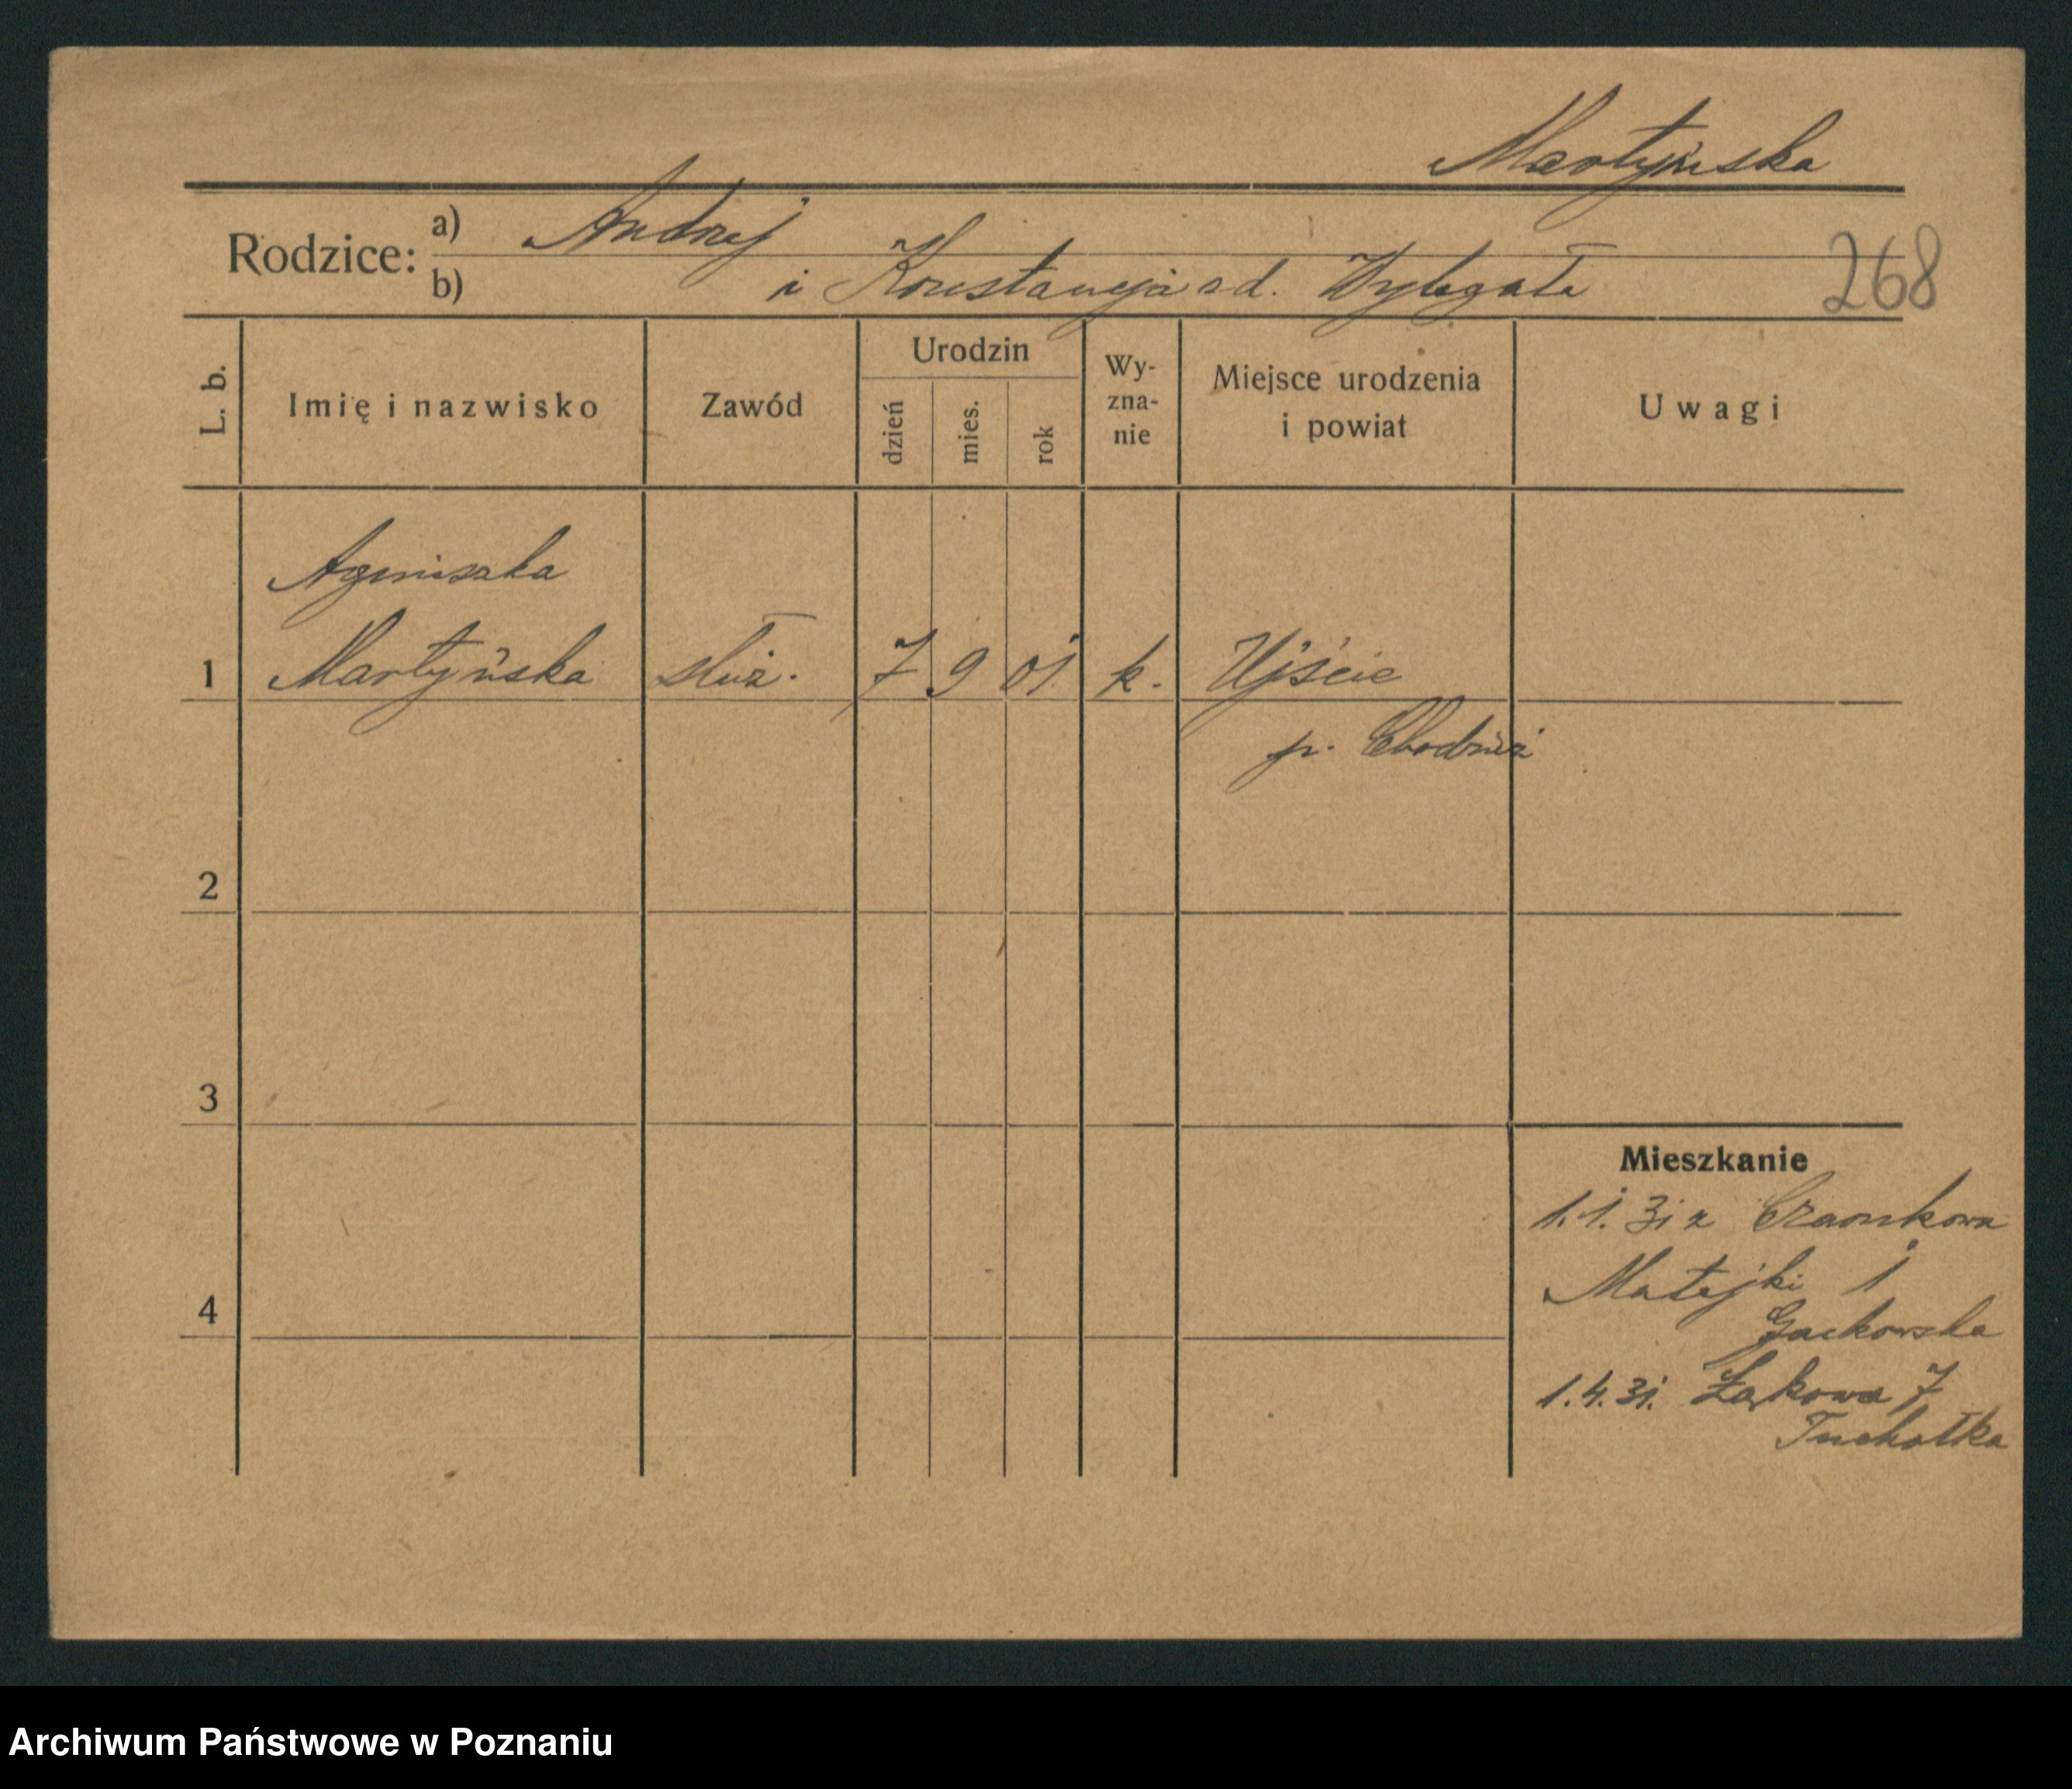 Martyńska
Rodzice: a) Andrzej
b) i Konstancja z d. Wylegała
268
L. b. Imię i nazwisko Zawód Urodzin dzień mies. rok Wy-zna-nie Miejsce urodzenia i powiat Uwagi
Agnieszka
1 Martyńska służ. 7 9 01 k. Ujście
p. Chodzież
2
3
Mieszkanie
1.1.31 z Czarnkowa
Matejki 1
4
Gackowska
1.4.31. Łąkowa 7
Tuchołka
Archiwum Państwowe w Poznaniu